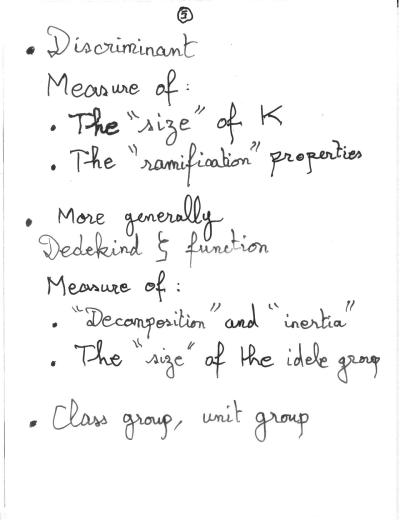 ⑤
• Discriminant
Measure of:
• The "size" of K
• The "ramification" properties
• More generally
Dedekind ζ function
Measure of:
• "Decomposition" and "inertia"
• The "size" of the idele group
• Class group, unit group